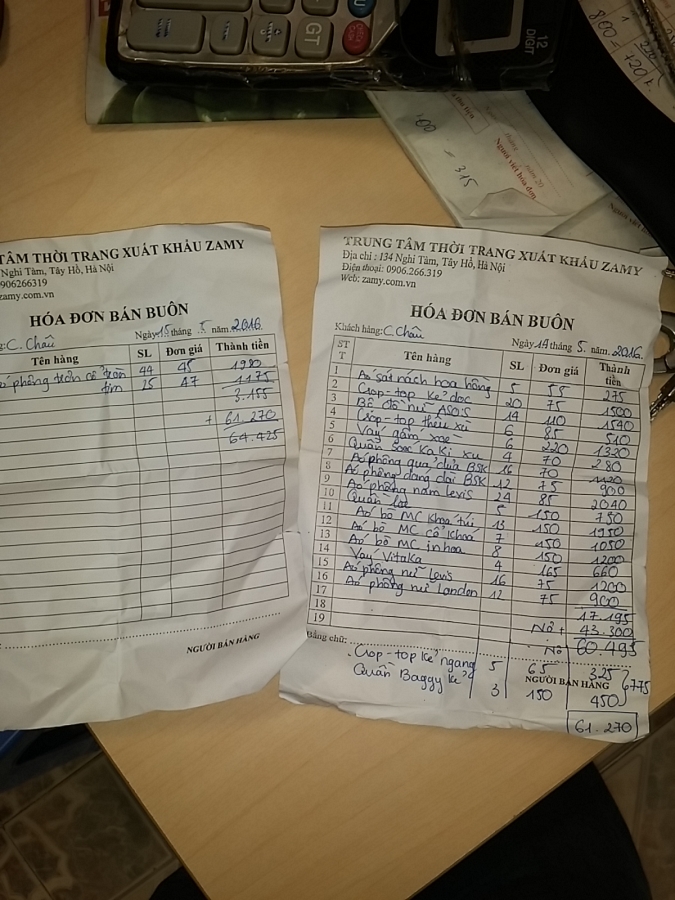 GT
12
DIGIT
1
800 =
720 k.
tháng
năm 20
Người viết hóa đơn
= 315
TÂM THỜI TRANG XUẤT KHẨU ZAMY
Nghi Tàm, Tây Hồ, Hà Nội
0906266319
zamy.com.vn
HÓA ĐƠN BÁN BUÔN
C. Châu Ngày 15 tháng 5 năm 2016
Tên hàng SL Đơn giá Thành tiền
phông trơn cổ tròn 44 45 1980
tim 25 47 1175
3.155
+ 61.270
64.425
NGƯỜI BÁN HÀNG
TRUNG TÂM THỜI TRANG XUẤT KHẨU ZAMY
Địa chỉ : 134 Nghi Tàm, Tây Hồ, Hà Nội
Điện thoại: 0906.266.319
Web: zamy.com.vn
HÓA ĐƠN BÁN BUÔN
Khách hàng: C. Châu Ngày 14 tháng 5 năm 2016
STT Tên hàng SL Đơn giá Thành tiền
1 Áo sát nách hoa hồng 5 55 275
2 Crop-top kẻ dọc 20 75 1500
3 Bộ đồ nữ ASOS 14 110 1540
4 Crop-top thêu xù 6 85 510
5 Váy gấm xoè 6 220 1320
6 Quần Sooc Ka Ki xu 4 70 280
7 Áo phông quả dứa BSK 16 70 1120
8 Áo phông dáng dài BSK 12 75 900
9 Áo phông nam levis 24 85 2040
10 Quần 5 150 750
11 Áo bò MC khoá túi 13 150 1950
12 Áo bò MC cổ khoá 7 150 1050
13 Áo bò MC in hoa 8 150 1200
14 Váy Vitaka 4 165 660
15 Áo phông nữ Levis 16 75 1200
16 Áo phông nữ London 12 75 900
17 17.195
18 Nợ + 43.300
19 Nợ 60.495
Bằng chữ:
Crop-top kẻ ngang 5 65 325
NGƯỜI BÁN HÀNG
Quần Baggy kẻ 3 150 450
775
61.270